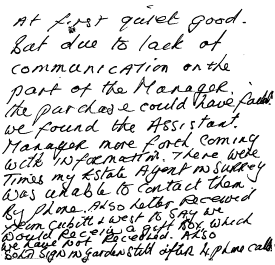 At first quiet good.
But due to lack of
communication on the
part of the Manager.
the purchase could have failed.
we found the Assistant.
Manager more forth coming
with information. There were
Times my Estate Agent in Surrey
was unable to contact them.
By phone. Also Letter Received
from Cubitt & West to say we
would Receive a gift Box, which
we have not Received. Also
Sold Sign in garden still after 4 phone calls.